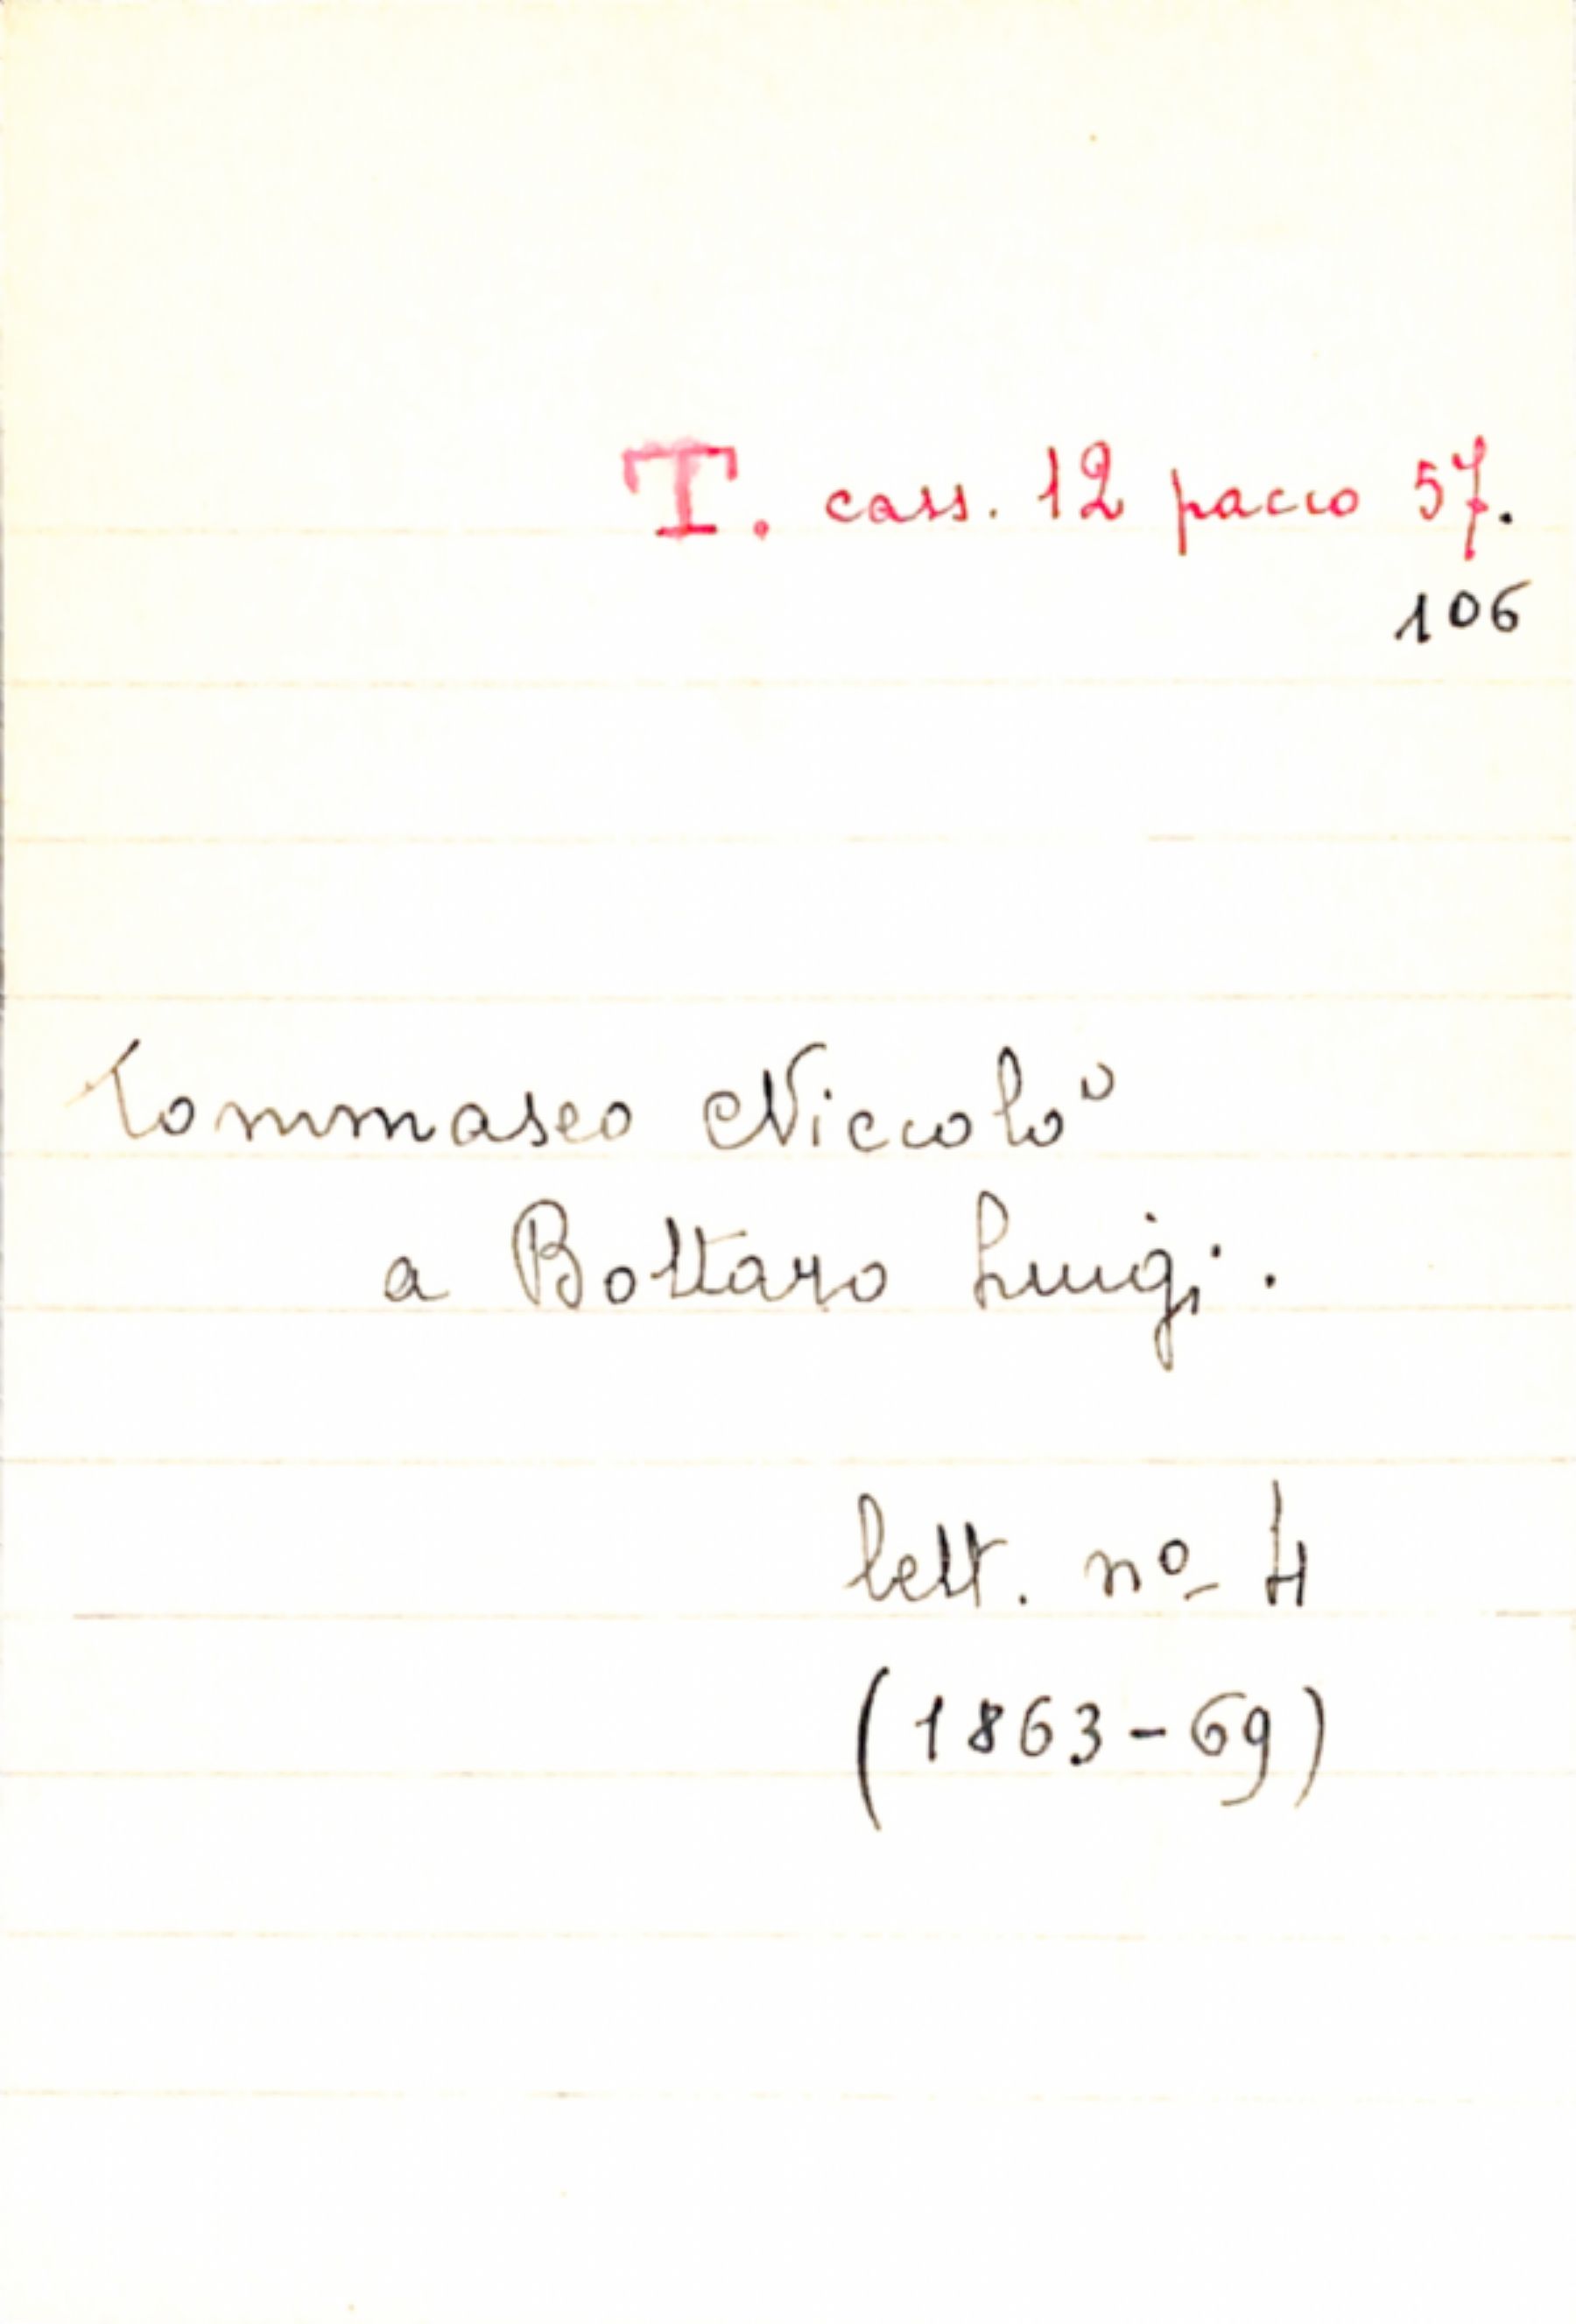 T. cass. 12 pacco 57.
106
Tommaseo Niccolò
a Bottaro Luigi.
lett. nº 4
(1863-69)